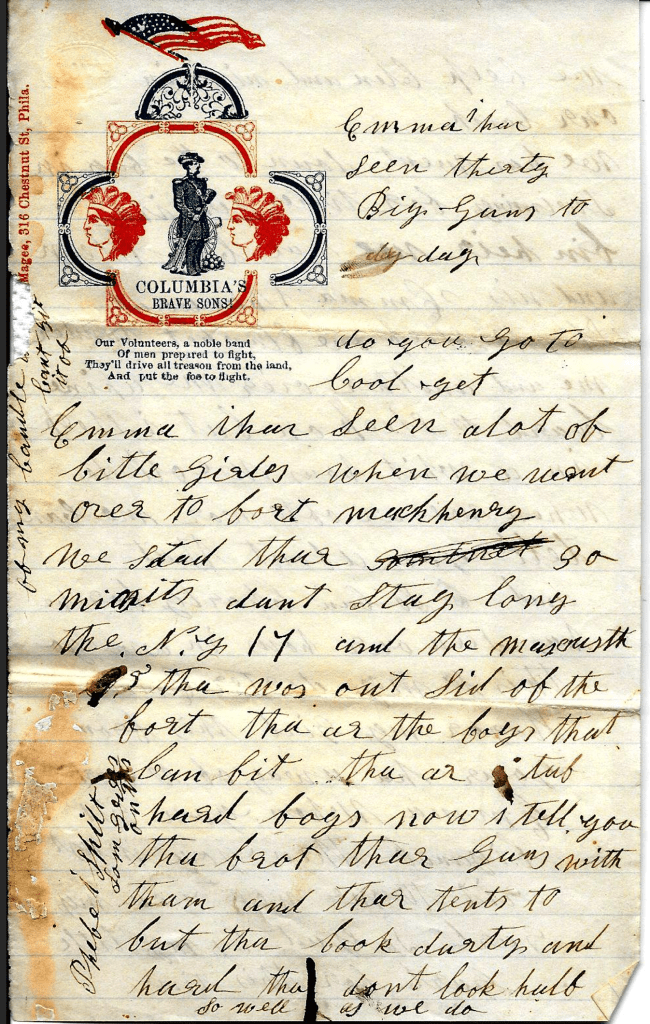 Magee, 316 Chestnut St, Phila.
COLUMBIA'S
BRAVE SONS!
Our Volunteers, a noble band
Of men prepared to fight,
They'll drive all treason from the land,
And put the foe to flight.
Emma i har
seen therty
Big Guns to
day
do you go to
Cool yet
Emma i har seen alot of
little Girles when we want
over to fort machhenry
we stad thar 30
minits dant stay long
the N.y 17 and the
tha was out sid of the
fort tha ar the boys that
can fit tha ar tuf
hard boys now i tell you
tha brot thar Guns with
tham and thar tents to
but tha look durty and
hard tha dont look half
so well as we do
of my
cant git
Phebe i
som
on